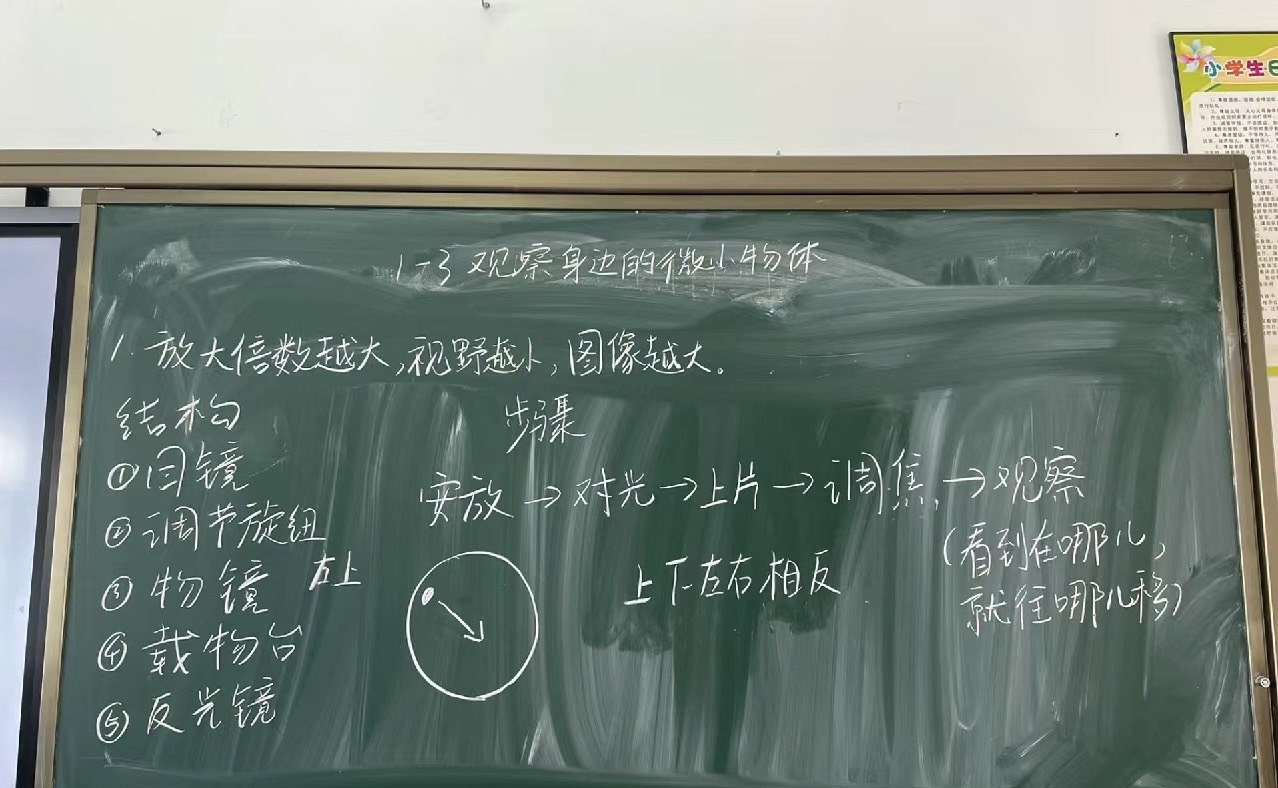 小学生日
1-3 观察身边的微小物体
1. 放大倍数越大,视野越小,图像越大。
结构
①目镜
②调节旋钮
③物镜
④载物台
⑤反光镜
步骤
安放→对光→上片→调焦→观察
(看到在哪儿,
就往哪儿移)
左上
上下左右相反